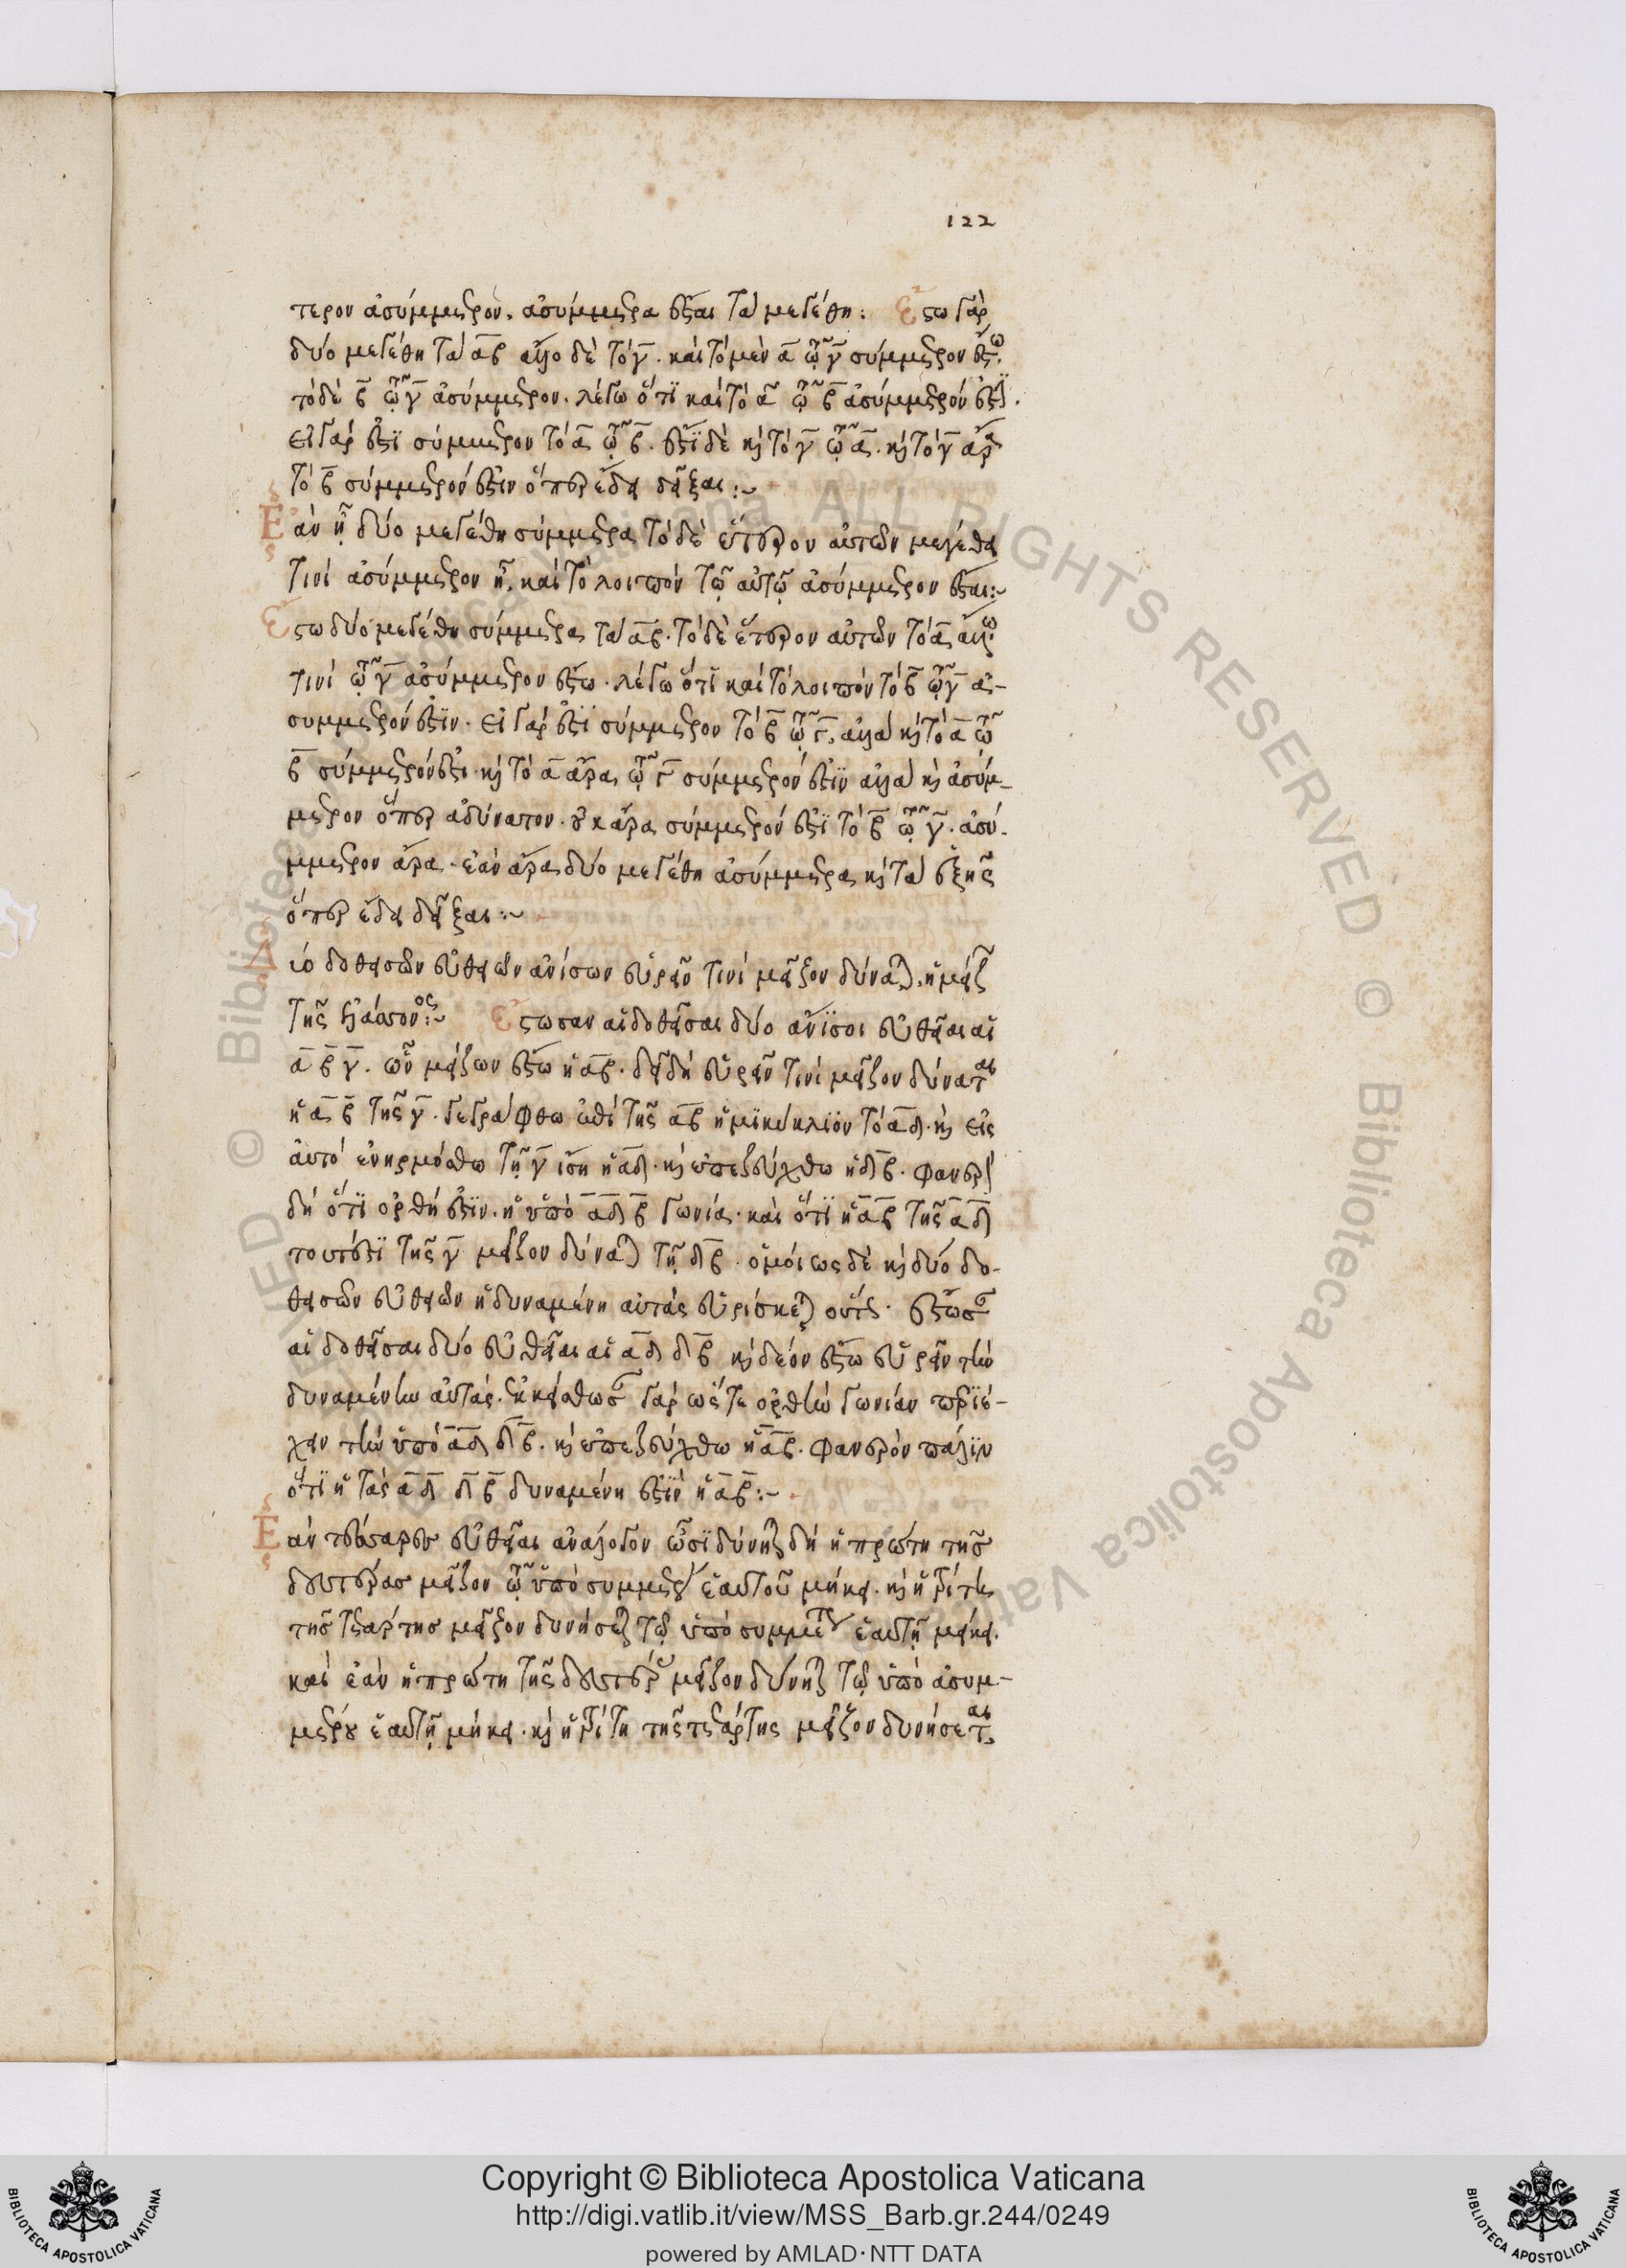 122
τερον ἀσύμμετρον, ἀσύμμετρα ἔσται τὰ μεγέθη: Ἔστω γὰρ
δύο μεγέθη τὰ α β ἄλλο δὲ τὸ γ. καὶ τὸ μὲν α τῷ γ σύμμετρον ἔστω.
τὸ δὲ β τῷ γ ἀσύμμετρον. λέγω ὅτι καὶ τὸ α τῷ β ἀσύμμετρόν ἐστι.
εἰ γάρ ἐστι σύμμετρον τὸ α τῷ β. ἔστι δὲ κ τὸ γ τῷ α. κ τὸ γ ἄρα
τὸ β σύμμετρόν ἐστιν ὅπερ ἔδει δεῖξαι:~
Ἐὰν ᾖ δύο μεγέθη σύμμετρα τὸ δὲ ἕτερον αὐτῶν μεγέθει
τινὶ ἀσύμμετρον ᾖ, καὶ τὸ λοιπὸν τῷ αὐτῷ ἀσύμμετρον ἔσται:~
Ἔστω δύο μεγέθη σύμμετρα τὰ α β. τὸ δὲ ἕτερον αὐτῶν τὸ α ἄλλῳ
τινὶ τῷ γ ἀσύμμετρον ἔστω. λέγω ὅτι καὶ τὸ λοιπὸν τὸ β τῷ γ ἀ-
συμμετρόν ἐστιν. εἰ γάρ ἐστι σύμμετρον τὸ β τῷ γ, ἀλλὰ κ τὸ α τῷ
β σύμμετρόν ἐστι. κ τὸ α ἄρα τῷ γ σύμμετρόν ἐστιν ἀλλὰ κ ἀσύμ-
μετρον ὅπερ ἀδύνατον. οὐκ ἄρα σύμμετρόν ἐστι τὸ β τῷ γ. ἀσύ-
μμετρον ἄρα. ἐὰν ἄρα δύο μεγέθη ἀσύμμετρα κ τὰ ἑξῆς
ὅπερ ἔδει δεῖξαι:~
Δύο δοθεισῶν εὐθειῶν ἀνίσων εὑρεῖν τινὶ μεῖζον δύναται ἡ μείζων
τῆς ἐλάσσονος:~ Ἔστωσαν αἱ δοθεῖσαι δύο ἄνισοι εὐθεῖαι αἱ
α β γ. ὧν μείζων ἔστω ἡ α β. δεῖ δὴ εὑρεῖν τινὶ μεῖζον δύναται
ἡ α β τῆς γ. γεγράφθω ἐπὶ τῆς α β ἡμικύκλιον τὸ α δ. κ εἰς
αὐτὸ ἐνηρμόσθω τῇ γ ἴση ἡ α δ. κ ἐπεζεύχθω ἡ δ β. φανερὸν
δὴ ὅτι ὀρθή ἐστιν. ἡ ὑπὸ α δ β γωνία. καὶ ὅτι ἡ α β τῆς α δ
τουτέστι τῆς γ μεῖζον δύναται τῇ δ β. ὁμοίως δὲ κ δύο δο-
θεισῶν εὐθειῶν ἡ δυναμένη αὐτὰς εὑρίσκεται οὕτως. ἔστωσαν
αἱ δοθεῖσαι δύο εὐθεῖαι αἱ α δ δ β κ δέον ἔστω εὑρεῖν τὴν
δυναμένην αὐτάς. ἐκκείσθωσαν γὰρ ὥστε ὀρθὴν γωνίαν περιέ-
χειν τὴν ὑπὸ α δ δ β. κ ἐπεζεύχθω ἡ α β. φανερὸν πάλιν
ὅτι ἡ τὰς α δ δ β δυναμένη ἐστὶν ἡ α β:~
Ἐὰν τέσσαρες εὐθεῖαι ἀνάλογον ὦσι δύνηται δὴ ἡ πρώτη τῆς
δευτέρας μεῖζον τῷ ὑπὸ συμμέτρου ἑαυτοῦ μήκει. κ ἡ τρίτη
τῆς τετάρτης μεῖζον δυνήσεται τῷ ὑπὸ συμμέτρου ἑαυτῇ μήκει.
καὶ ἐὰν ἡ πρώτη τῆς δευτέρας μεῖζον δύνηται τῷ ὑπὸ ἀσυμ-
μέτρου ἑαυτῇ μήκει. κ ἡ τρίτη τῆς τετάρτης μεῖζον δυνήσεται
ALL RIGHTS RESERVED © Biblioteca Apostolica Vaticana
Copyright © Biblioteca Apostolica Vaticana
http://digi.vatlib.it/view/MSS_Barb.gr.244/0249
powered by AMLAD·NTT DATA
BIBLIOTECA APOSTOLICA VATICANA
BIBLIOTECA APOSTOLICA VATICANA